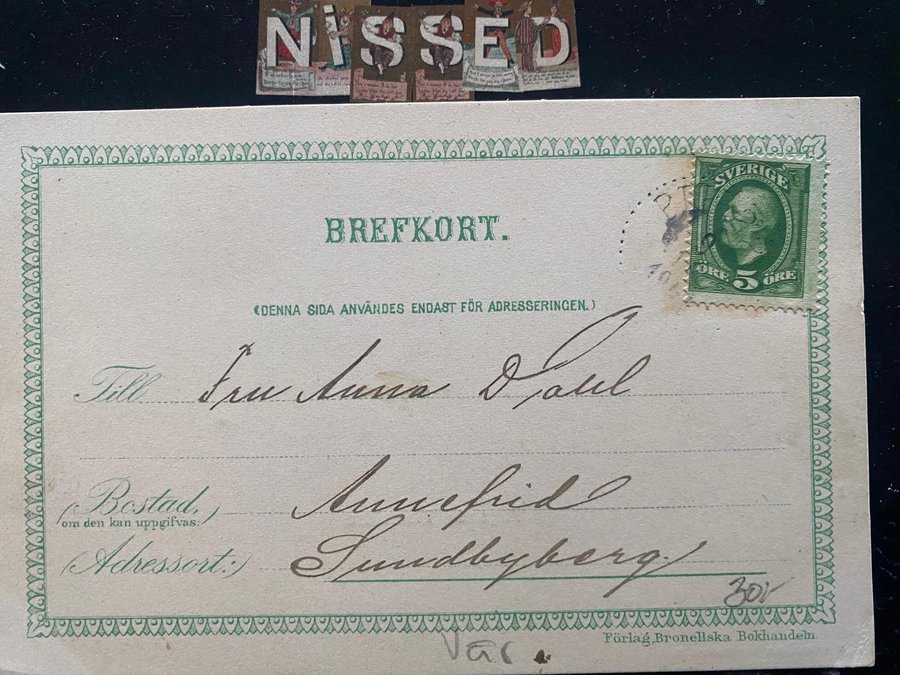 NISSED
BREFKORT.
(DENNA SIDA ANVÄNDES ENDAST FÖR ADRESSERINGEN.)
SVERIGE
ÖRE 5 ÖRE
Till Fru Anna Dahl
(Bostad, Annefrid
om den kan uppgifvas:)
(Adressort:) Sundbyberg
30:-
Förlag, Bronellska Bokhandeln
Vår.